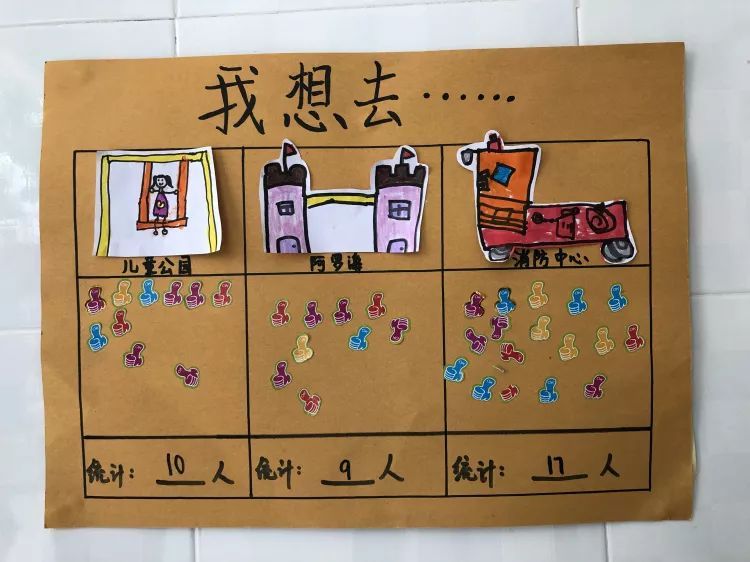 我想去……
儿童公园
阿罗海
消防中心
统计：10人
统计：9人
统计：17人